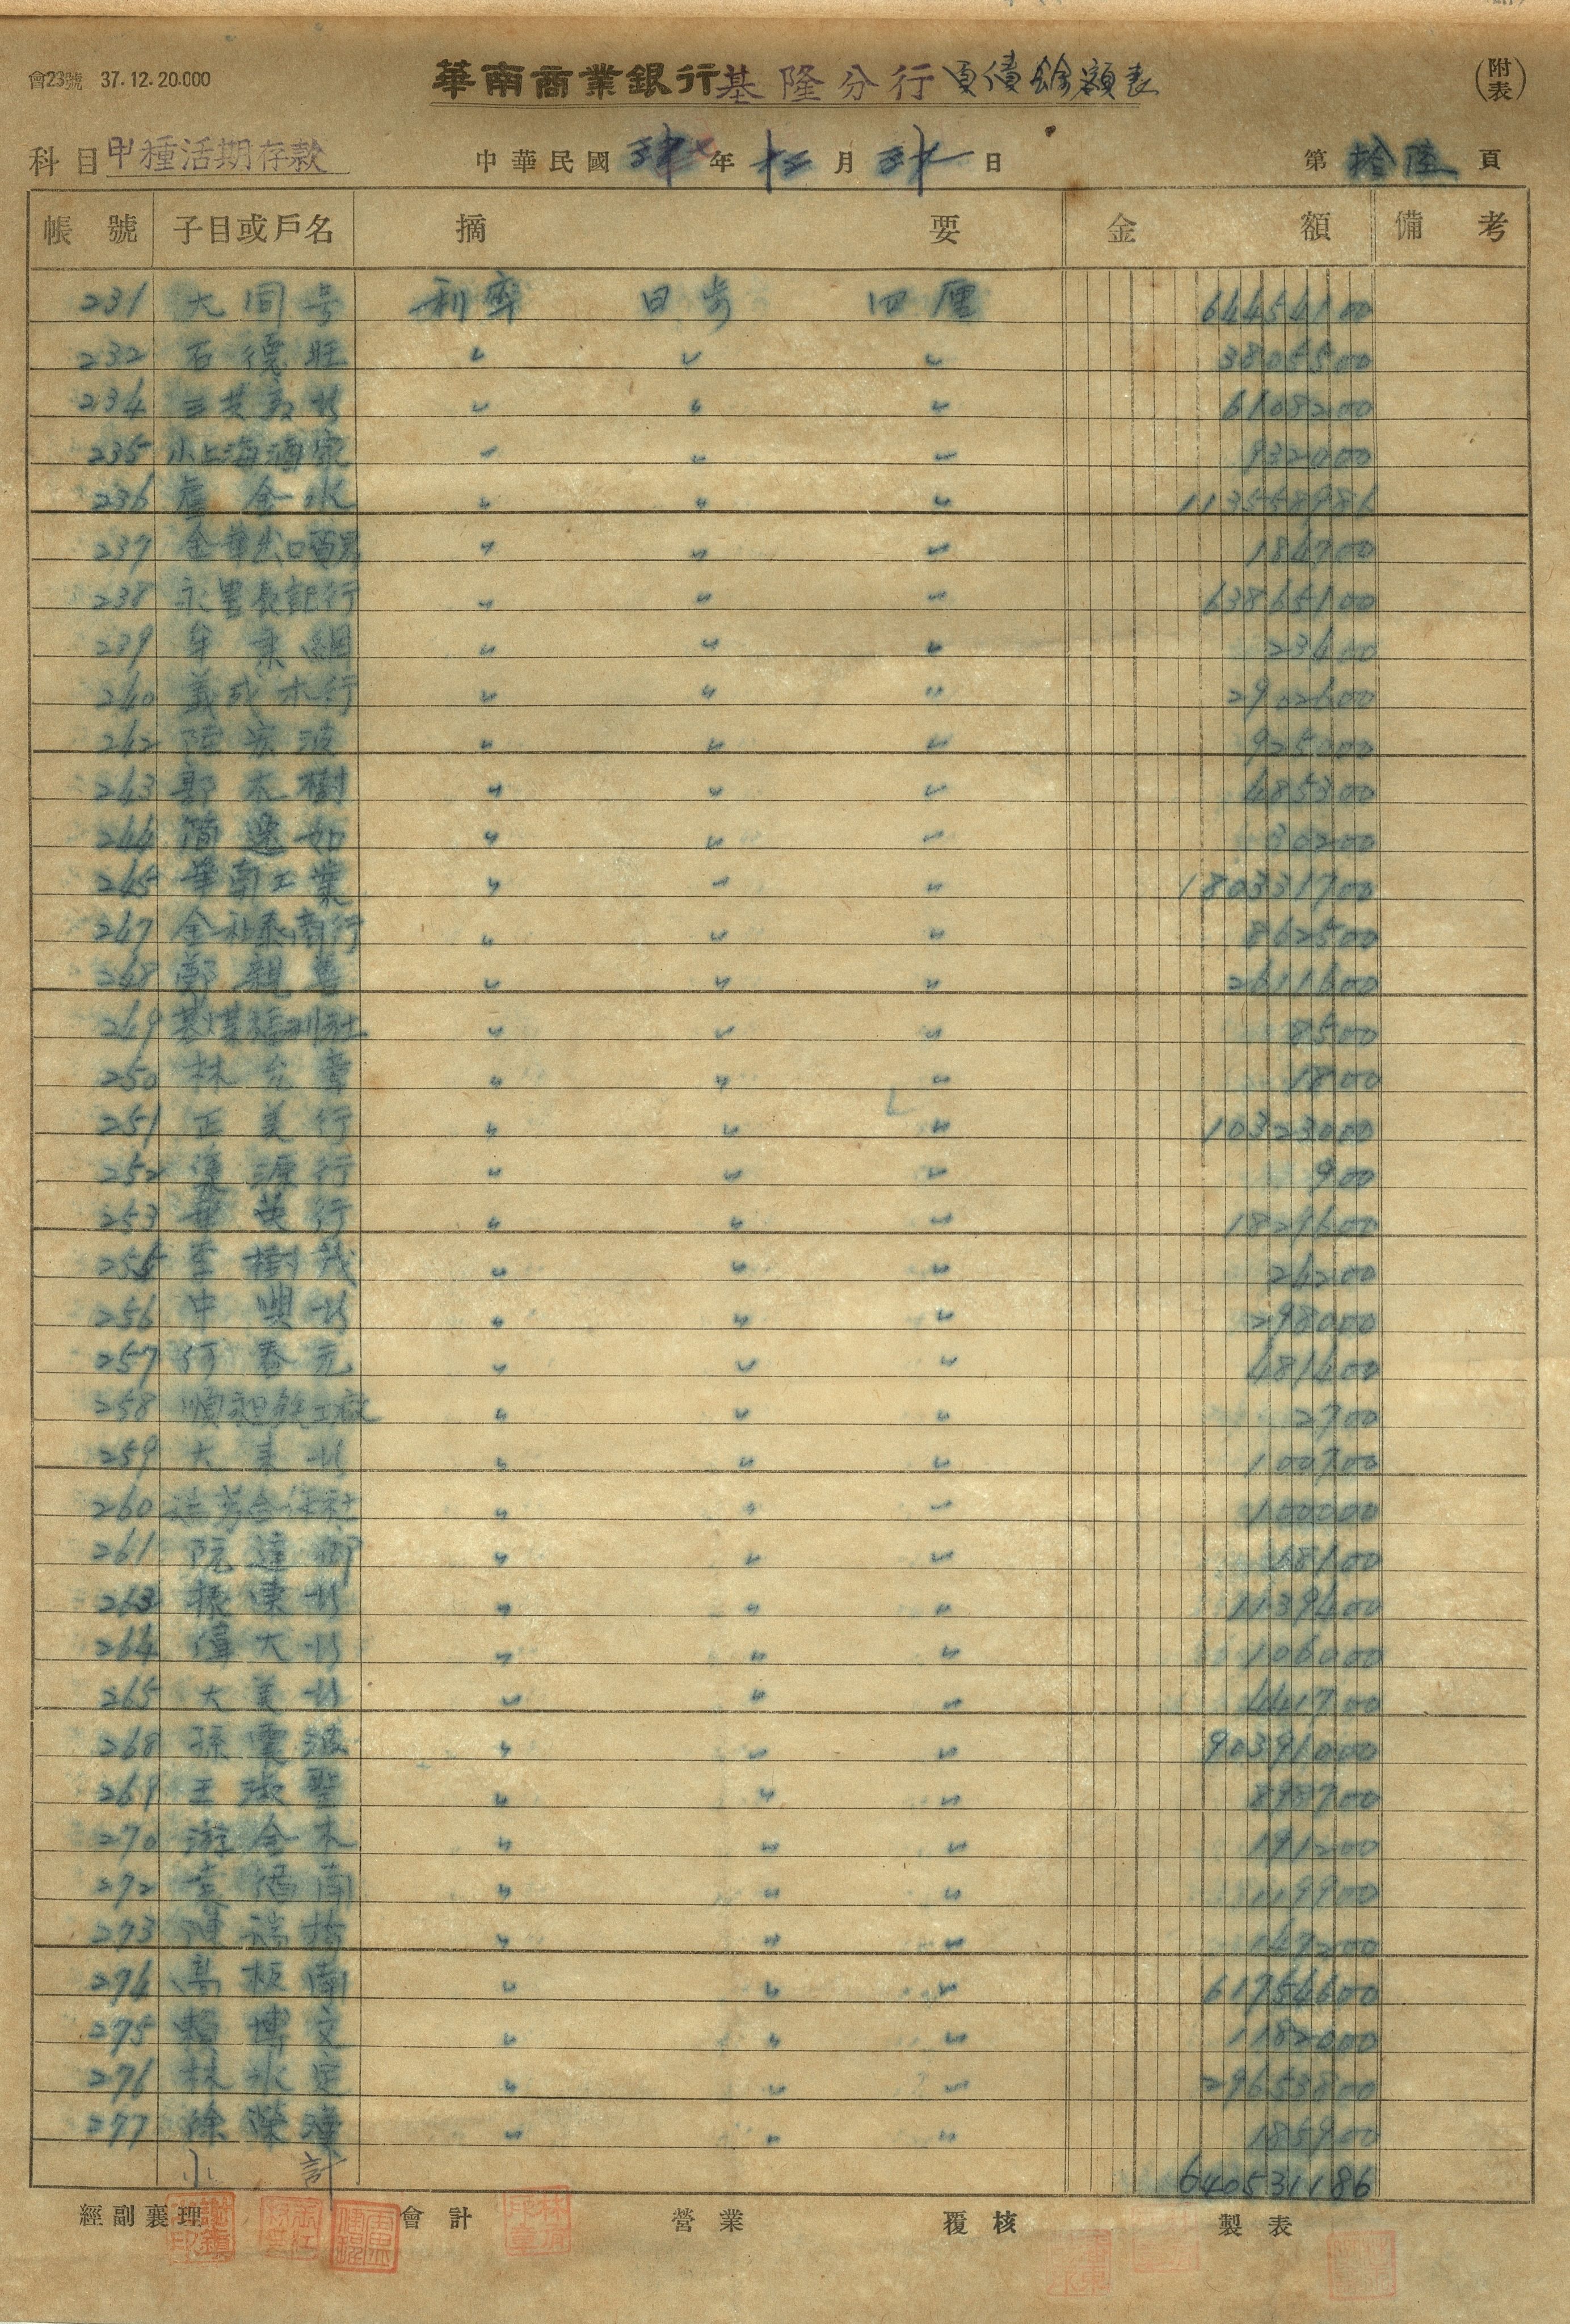 會23號 37.12.20.000
華南商業銀行基隆分行負債餘額表
(附表)
科目 甲種活期存款 中華民國 年 月 日 第拾陸頁
帳號 子目或戶名 摘要 金額 備考
231 大同号 利率 日步 四厘 64454100
232 石德旺 〃 〃 〃 3805500
234 〃 〃 〃 6108200
235 小上海酒家 〃 〃 〃 932000
236 盧金水 〃 〃 〃 113558986
237 金華出口貿易 〃 〃 〃 184700
238 永豐長記行 〃 〃 〃 63865100
239 〃 〃 〃 23400
240 義成木行 〃 〃 〃 2902600
242 陸宏波 〃 〃 〃 925000
243 郭木樹 〃 〃 〃 485300
244 簡逢如 〃 〃 〃 30200
245 華南工業 〃 〃 〃 180331700
247 金和泰商行 〃 〃 〃 862500
248 鄭親善 〃 〃 〃 2611600
249 基煤福利社 〃 〃 〃 8500
250 林金章 〃 〃 〃 1800
251 正美行 〃 〃 〃 10323000
252 源行 〃 〃 〃 900
253 華英行 〃 〃 〃 1821600
255 李樹茂 〃 〃 〃 26200
256 中興 〃 〃 〃 298000
257 何春元 〃 〃 〃 481400
258 順和鉄工廠 〃 〃 〃 2700
259 大東 〃 〃 〃 100700
260 瑞芳合作社 〃 〃 〃 100000
261 阮達卿 〃 〃 〃 18100
263 振東 〃 〃 〃 1139400
264 偉大 〃 〃 〃 106000
265 大美 〃 〃 〃 441700
268 孫震波 〃 〃 〃 90391000
269 王淑聖 〃 〃 〃 898700
270 游金木 〃 〃 〃 191200
272 南 〃 〃 〃 119900
273 陳福 〃 〃 〃 147200
274 高板南 〃 〃 〃 61754600
275 賴博文 〃 〃 〃 1182000
276 林水定 〃 〃 〃 29653800
277 徐榮 〃 〃 〃 185900
小計 640531186
經副襄理 會計 營業 覆核 製表